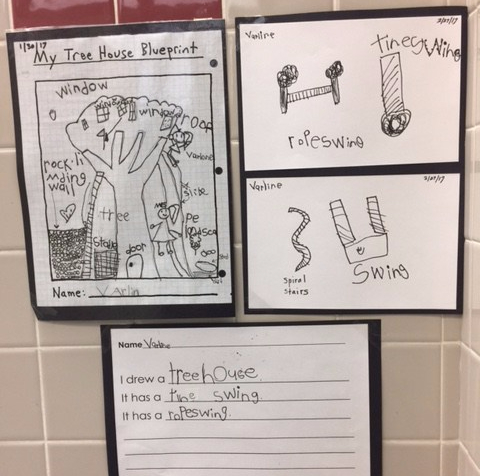 1/30/17
My Tree House Blueprint
window
window
window
roof
Varline
rock·li
mding
wall
slide
tree
me
stairs
door
Name: Varlin
2/27/17
Varline
tinegwing
ropeswing
Varline
2/27/17
spiral
stairs
swing
Name Varline
I drew a treehouse.
It has a tine swing.
It has a ropeswing.